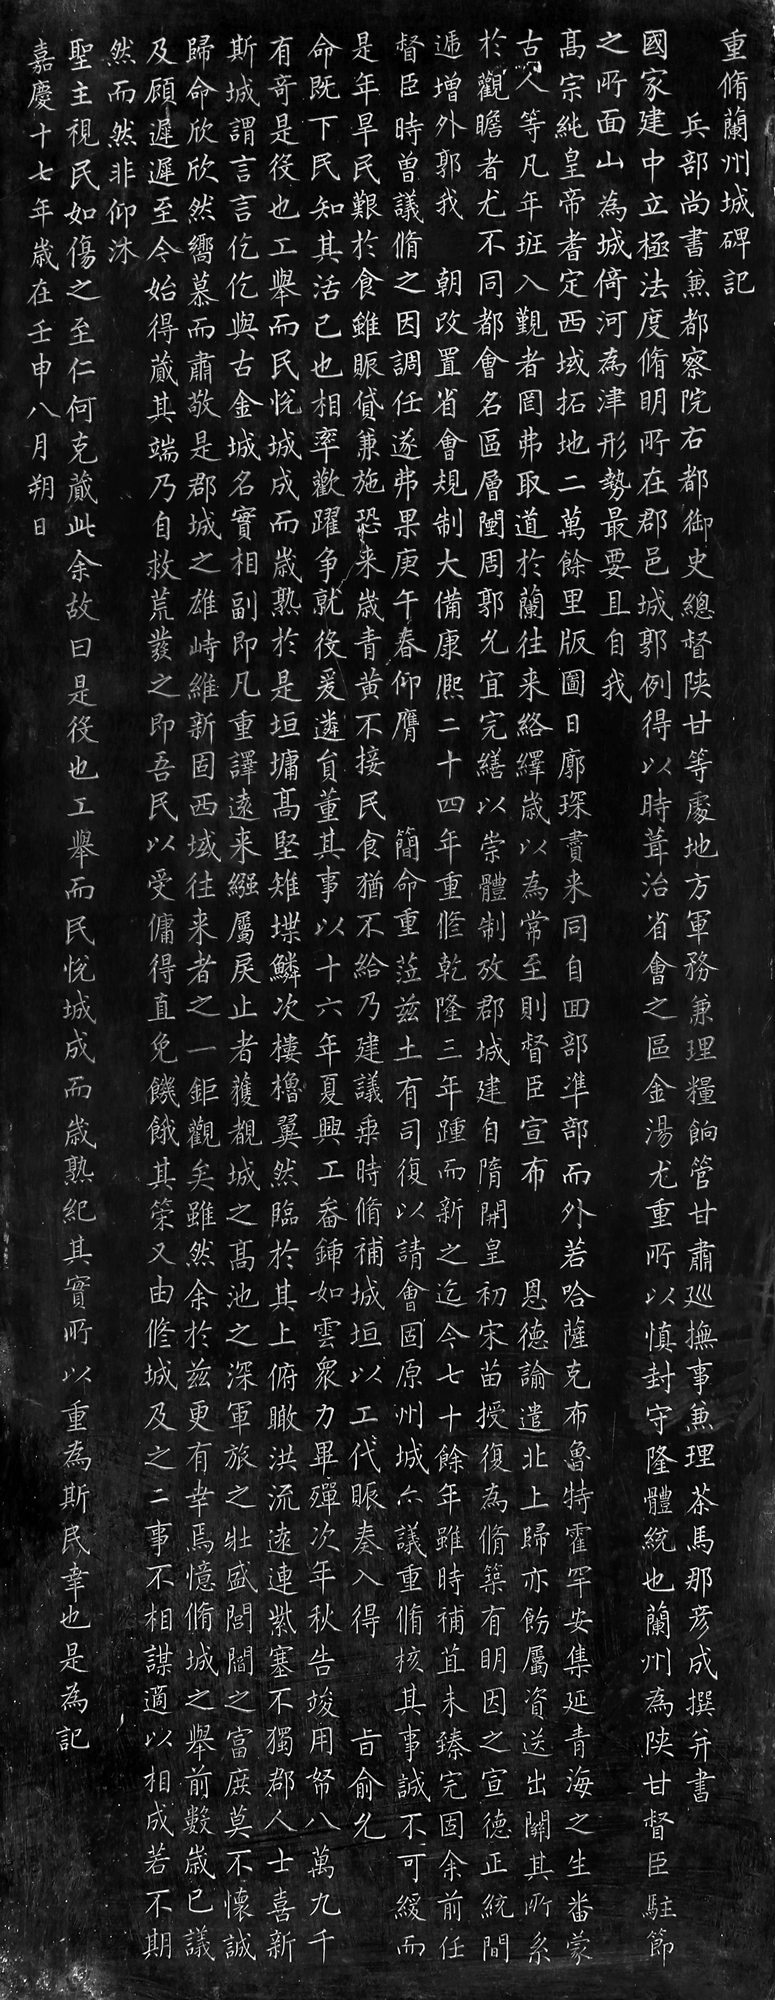 重脩蘭州城碑記
兵部尚書兼都察院右都御史總督陝甘等處地方軍務兼理糧餉管甘肅巡撫事兼理茶馬那彥成撰并書
國家建中立極法度脩明所在郡邑城郭例得以時葺治省會之區金湯尤重所以慎封守隆體統也蘭州為陝甘督臣駐節
之所面山為城倚河為津形勢最要且自我
高宗純皇帝耆定西域拓地二萬餘里版圖日廓琛賮來同自回部準部而外若哈薩克布魯特霍罕安集延青海之生番蒙
古人等凡年班入覲者罔弗取道於蘭往来絡繹歲以為常至則督臣宣布　恩德諭遣北上歸亦飭屬資送出關其所系
於觀瞻者尤不同都會名區層闉周郭允宜完繕以崇體制攷郡城建自隋開皇初宋苗授復為脩築有明因之宣德正統間
遞增外郭我　朝改置省會規制大備康熙二十四年重修乾隆三年踵而新之迄今七十餘年雖時補苴未臻完固余前任
督臣時曾議脩之因調任遂弗果庚午春仰膺　簡命重蒞兹土有司復以請會固原州城亦議重脩核其事誠不可緩而
是年旱民艱於食雖賑貸兼施恐来歲青黄不接民食猶不給乃建議乘時脩補城垣以工代賑奏入得　旨俞允
命既下民知其活己也相率歡躍爭就役爰遴員董其事以十六年夏興工畚鍤如雲眾力畢殫次年秋告竣用帑八萬九千
有奇是役也工舉而民悅城成而歲熟於是垣墉高堅雉堞鱗次樓櫓翼然臨於其上俯瞰洪流遠連紫塞不獨郡人士喜新
斯城謂言言仡仡與古金城名實相副即凡重譯遠来繦屬戾止者獲覩城之高池之深軍旅之壯盛閭閻之富庶莫不懷誠
歸命欣欣然嚮慕而肅敬是郡城之雄峙維新固西域往来者之一鉅觀矣雖然余於兹更有幸焉憶脩城之舉前數歲已議
及顧遲遲至今始得蕆其端乃自救荒發之即吾民以受傭得直免饑餓其策又由修城及之二事不相謀適以相成若不期
然而然非仰沐
聖主視民如傷之至仁何克蕆此余故曰是役也工舉而民悅城成而歲熟紀其實所以重為斯民幸也是為記
嘉慶十七年歲在壬申八月朔日